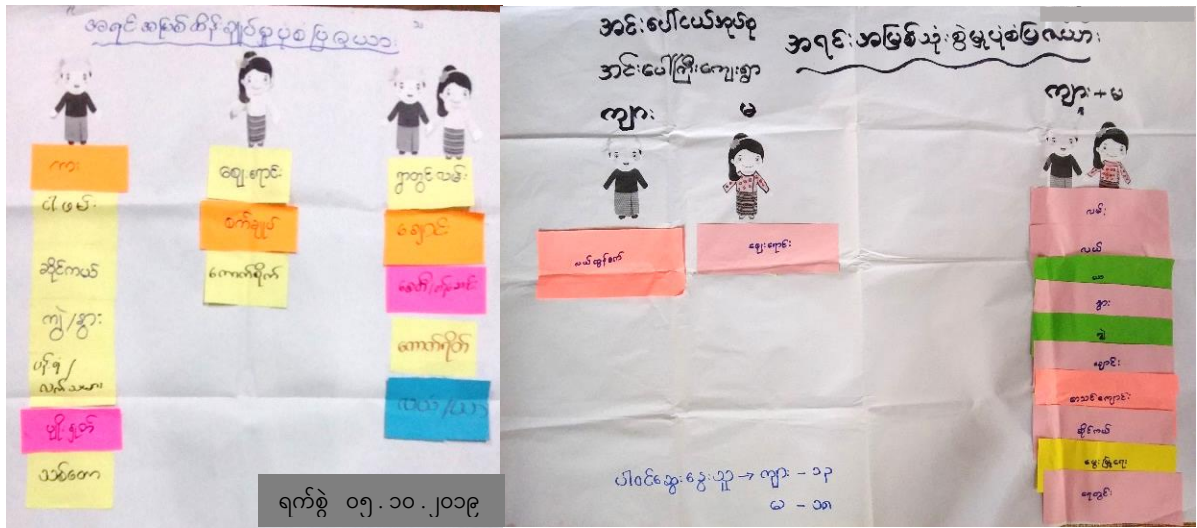 အရင်းအမြစ်ထိန်းချုပ်မှုပုံစံပြဇယား
ကား
ငါးဖမ်း
ဆိုင်ကယ်
ကျွဲ/နွား
ပန်းရံ/
လက်သမား
ပျိုးနှုတ်
သစ်တော
ဈေးရောင်း
စက်ချုပ်
ကောက်စိုက်
ရွာတွင်းလမ်း
ချောင်း
ကောက်ရိတ်
လယ်/ယာ
ရက်စွဲ ၀၅.၁၀.၂၀၁၉
အင်းပေါ်ငယ်အုပ်စု
အင်းပေါ်ကြီးကျေးရွာ
အရင်းအမြစ်သုံးစွဲမှုပုံစံပြဇယား
ကျား
မ
ကျား+မ
လယ်ထွန်စက်
ဈေးရောင်း
လမ်း
လယ်
ယာ
နွား
ကျွဲ
ချောင်း
စာသင်ကျောင်း
ဆိုင်ကယ်
မွေးမြူရေး
ရေတွင်း
ပါဝင်ဆွေးနွေးသူ → ကျား - ၁၃
မ - ၁၈